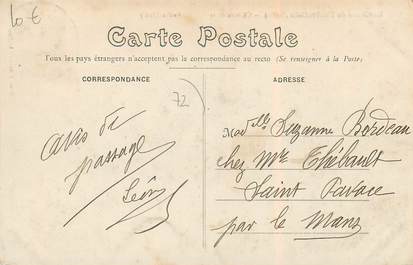 10 €
Carte Postale
Tous les pays étrangers n'acceptent pas la correspondance au recto (Se renseigner à la Poste)
CORRESPONDANCE
ADRESSE
72
avis de
passage
Léon
Madelle Suzanne Bordeau
chez Mr Thébault
Saint Pavace
par le Mans